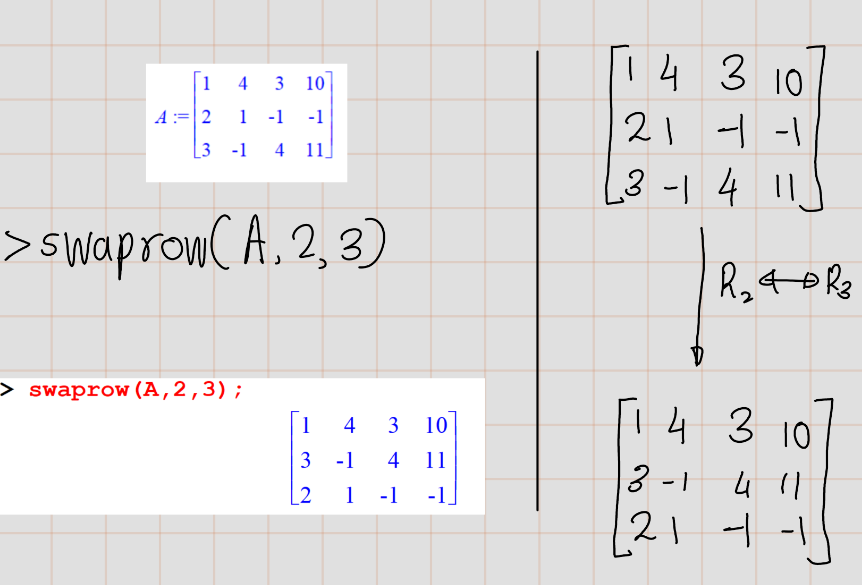 A := [1 4 3 10
2 1 -1 -1
3 -1 4 11]
>swaprow(A,2,3)
> swaprow(A,2,3);
[1 4 3 10
3 -1 4 11
2 1 -1 -1]
[1 4 3 10
2 1 -1 -1
3 -1 4 11]
R₂ ↔ R₃
[1 4 3 10
3 -1 4 11
2 1 -1 -1]